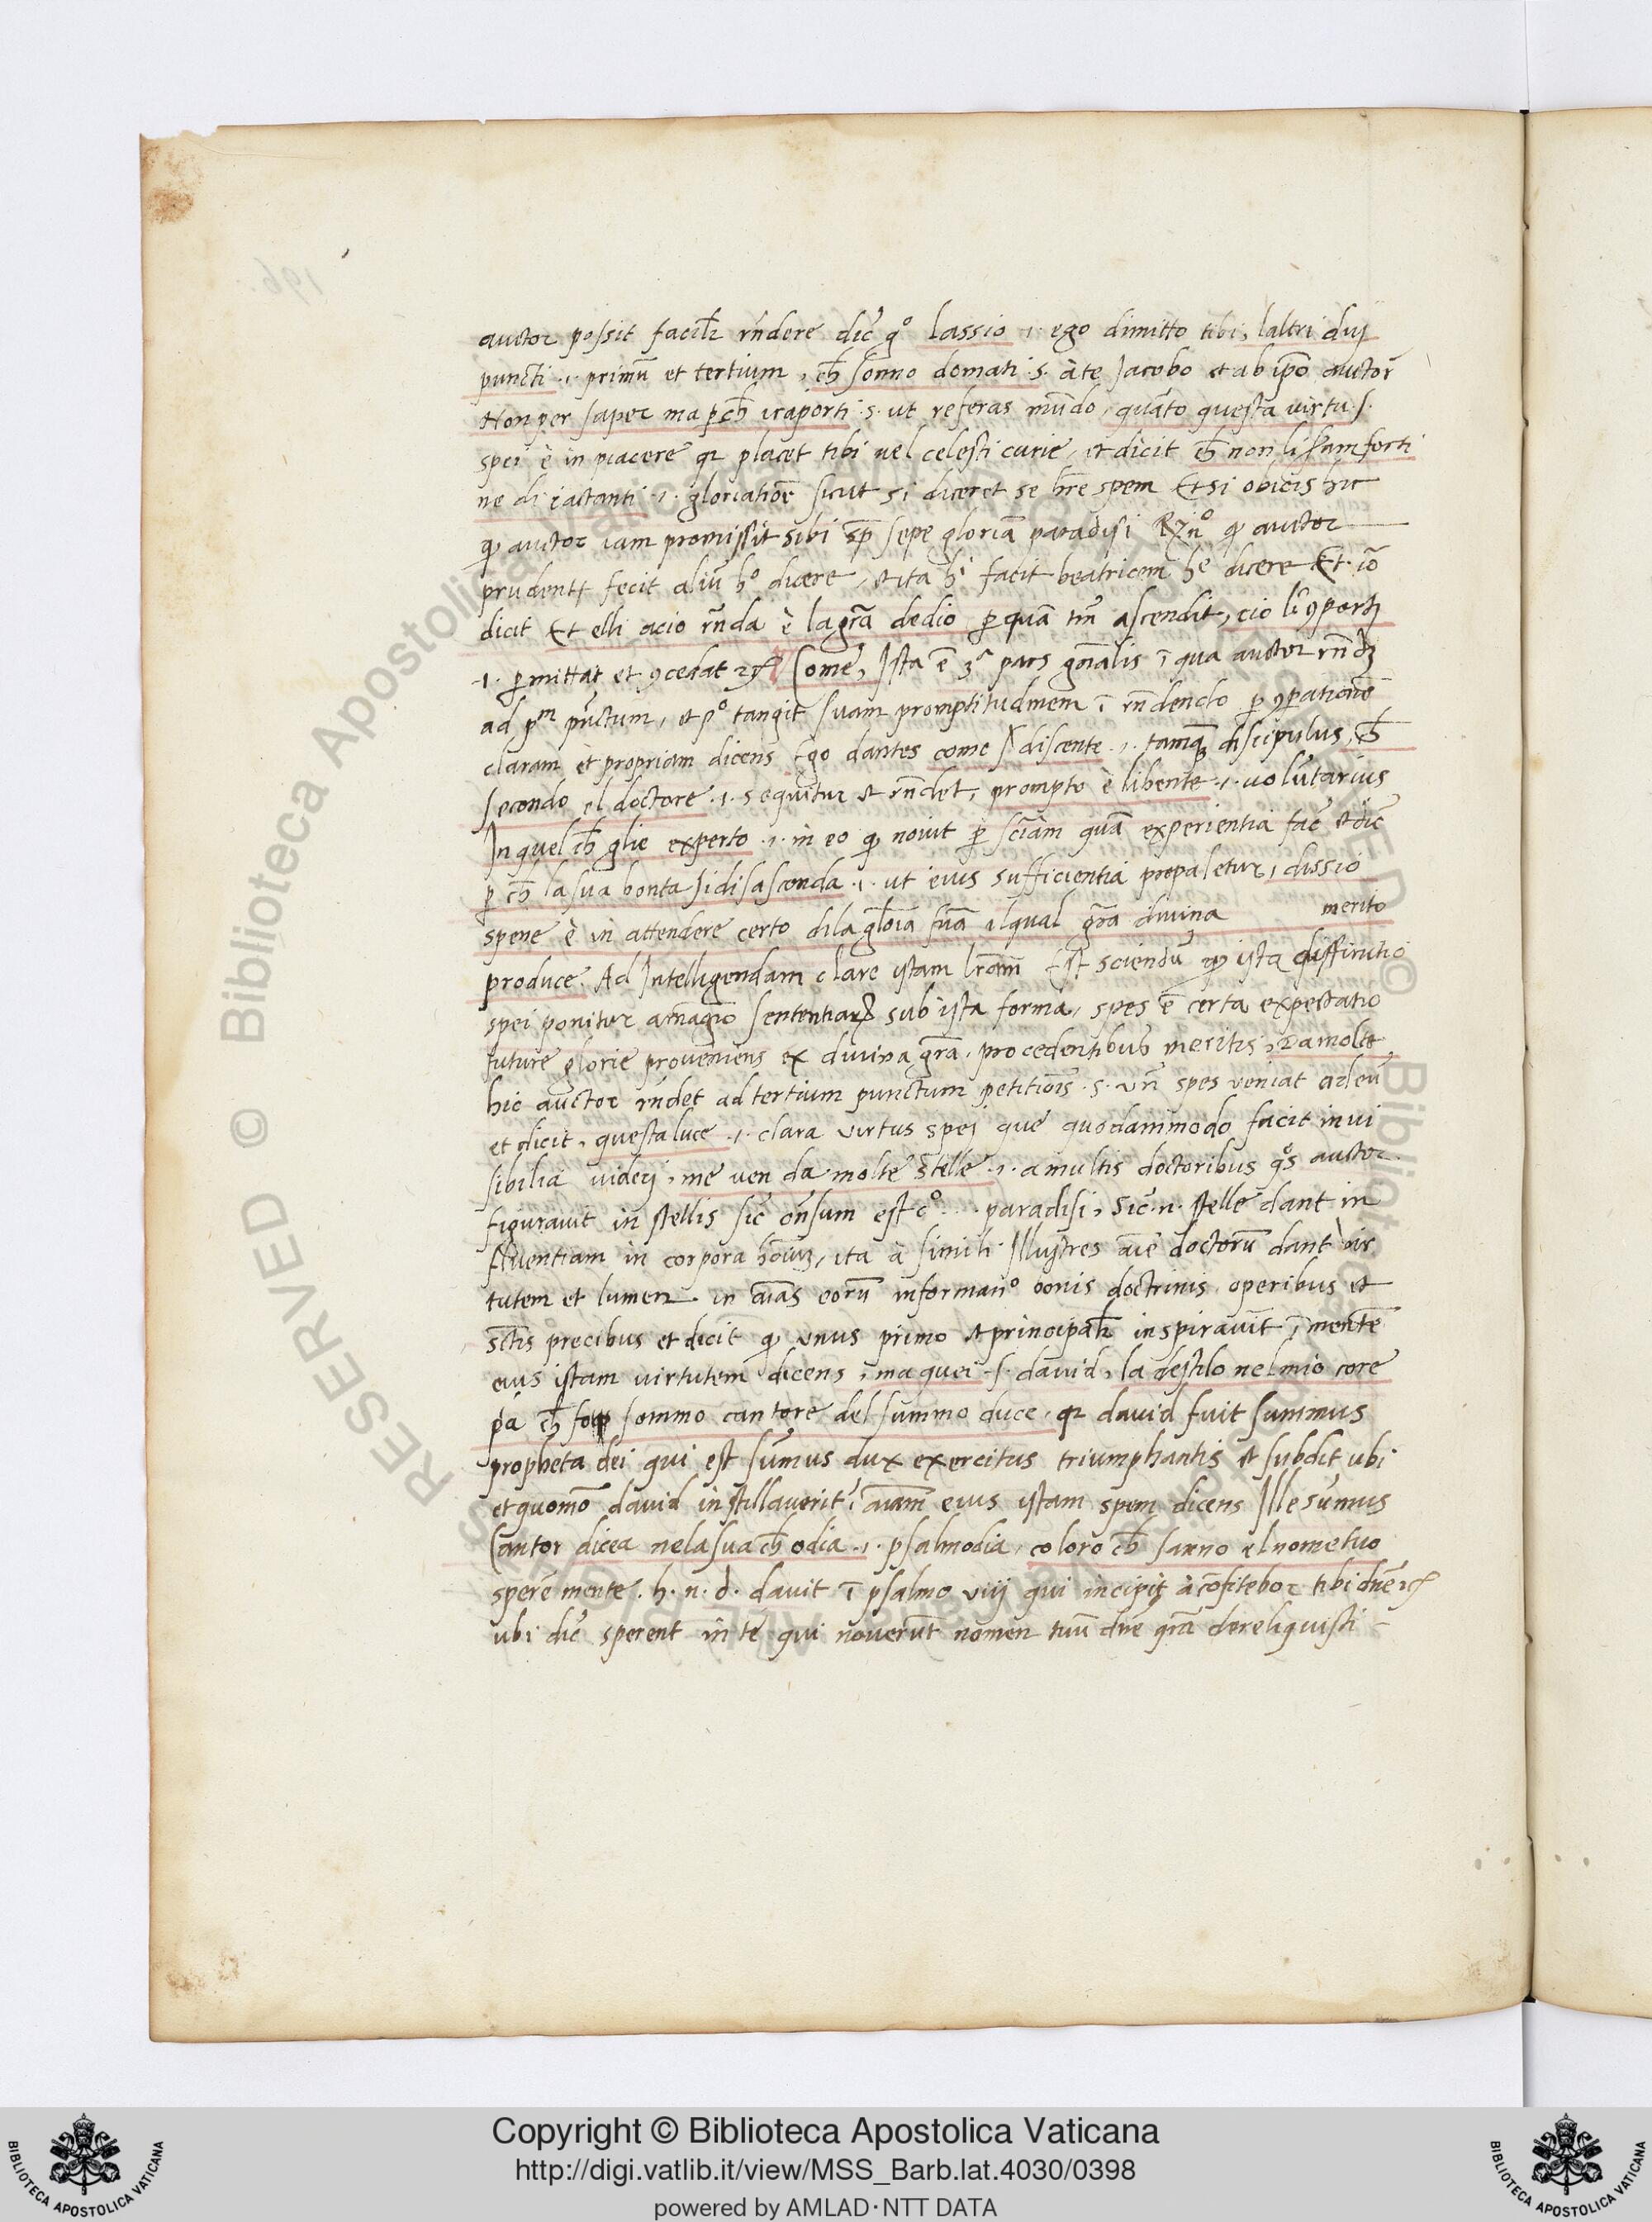 auctor possit facilr̄ rn̄dere dic̄ gͦ lassio .i. ego dimitto tibi, laltri duj
puncti .i. primū et tertium, ch̄ sonno domati .s. à te Jacobo et ab ip̄o auctor̄
Non per saper ma p ch̄ iraporti .s. ut referas mūdo, quāto questa virtu .s.
spei è in piacere qr placet tibi vel celesti curie, et dicit ch̄ non li saran forti
ne di iactanti .i. gloriatiōe sicut si diceret se hr̄e spem Et si obicis hic
qꝫ auctor iam promissit sibi sp̄ sepe gloriā paradisi R nͦ qꝫ auctor
prudentr fecit aliū hͦ dicere, et ita hⁱ facit beatricem hᵉ dicere Et iō
dicit Et elli acio rn̄da è la grā dedio ꝑ quā tm̄ ascendit, cio li ꝯportꝫ
.i. ꝑmittat et ꝯcedat ⁊cͣ Come, Ista ē 3ᵃ pars gn̄alis ī qua auctor rn̄dꝫ
ad pᵐ pūctum, et pͦ tangit suam promptitudinem ī rn̄dendo ꝑ ꝯparationē
claram et propriam dicens Ego dantes come discente .i. tamqꝫ discipulus, ch̄
secondo el doctore .i. sequitur et rn̄det, prompto è libente .i. volūtarius
In quel ch̄ glie experto .i. in eo qꝫ novit ꝑ sciām quā experientia fac̄ et dic̄
ꝑ ch̄ la sua bonta si disasconda .i. ut eius sufficientia propaletur, dissio
spene è in attendere certo dila gl̄oia fuā ilqual grā divina merito
produce. Ad Intelligendam clare istam lr̄am Est sciendū qꝫ ista diffinitio
spei ponitur a magr̄o sententiaꝝ sub ista forma, spes ē certa expectatio
future glorie proveniens ex divina grā, procedentibus meritis, Da molte
hic auctor rn̄det ad tertium punctum petitiōis .s. vn̄ spes veniat ad eū
et dicit, questa luce .i. clara virtus spej que quodammodo facit invi
sibilia viderj, me ven da molte stelle .i. a multis doctoribus qͦs auctor
figuravit in stellis sic̄ on̄sum est cͦ ... paradisi, Sic̄ .n. stelle dant in
fluentiam in corpora hoīuꝫ, ita à simili Illustres aīe doctorū dant vir
tutem et lumen in aīas eorū informanͦ bonis doctrinis operibus et
sctīs precibus et dicit qꝫ vnus primo et principalr̄ inspiravit ī mentē
eius istam virtutem dicens, ma quei .s. david, la destilo nel mio core
pa ch̄ fo sommo cantore del summo duce, qr david fuit summus
propheta dei qui est sūmus dux exercitus triumphantis et subdit ubi
et quomō david instillaverit ī aīam eius istam spem dicens Ille sūmus
Cantor dicea nela sua ch̄ odia .i. psalmodia, coloro ch̄ sanno el nome tuo
sperē mente. h. n. d. davit ī psalmo viij qui incipit à cōfitebor tibi dn̄e ⁊cͣ
ubi dic̄ sperent in te qui noverūt nomen tuū dn̄e qm̄ dereliquisti
Copyright © Biblioteca Apostolica Vaticana
http://digi.vatlib.it/view/MSS_Barb.lat.4030/0398
powered by AMLAD · NTT DATA